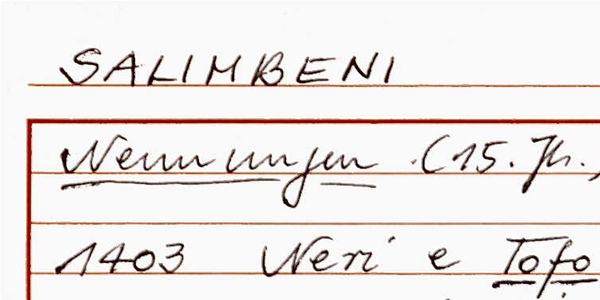 SALIMBENI
Nennungen (15. Jh.)
1403 Neri e Tofo